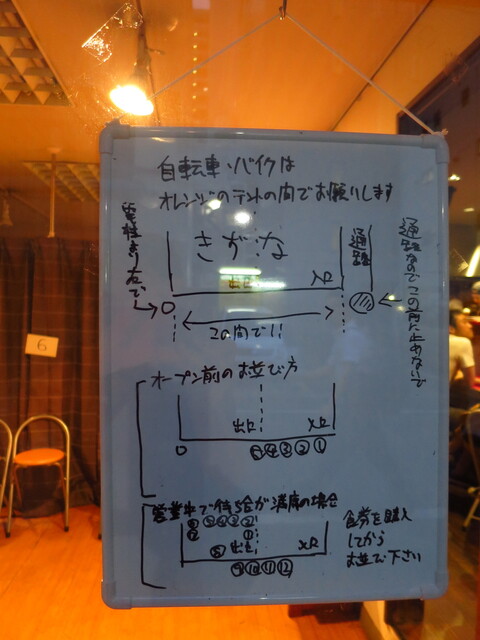 自転車・バイクは
オレンジのテントの間でお願いします
電柱より右で
きずな
通路
通路なのでこの前に止めないで
出口
入口
この間で!!
6
オープン前のお並び方
出口
入口
⑤④③②①
営業中で待合が満席の場合
出口
入口
⑨⑩⑪⑫
食券を購入
してから
お並び下さい